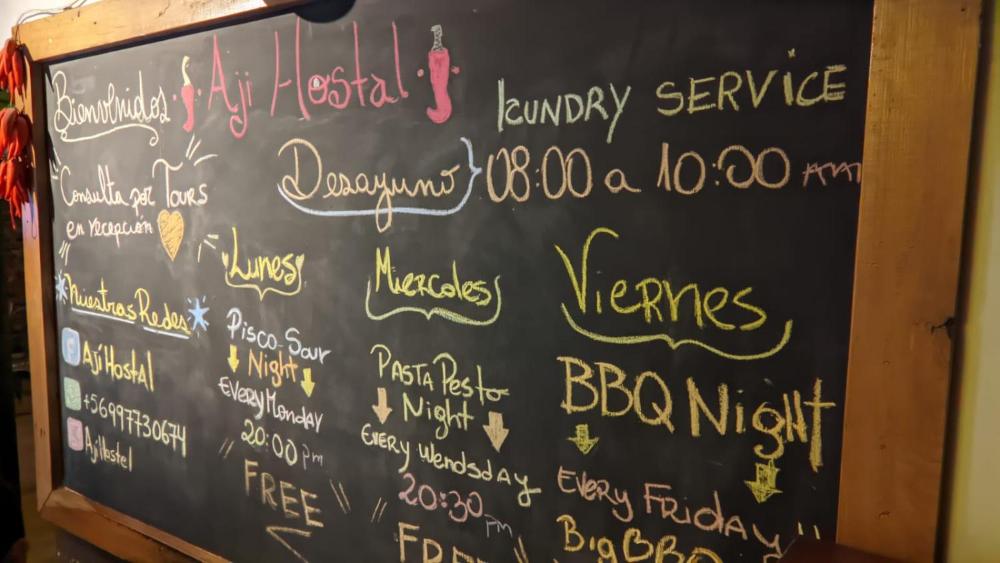 Bienvenidos Aji Hostal
LAUNDRY SERVICE
Desayuno 08:00 a 10:00 AM
Consulta por Tours
en recepción
Nuestras Redes
Aji Hostal
+56997730674
AjiHostel
Lunes
Pisco-Sour
Night
Every Monday
20:00 pm
FREE
Miercoles
Pasta Pesto
Night
Every Wendsday
20:30 pm
FREE
Viernes
BBQ Night
Every Friday
Big BBQ